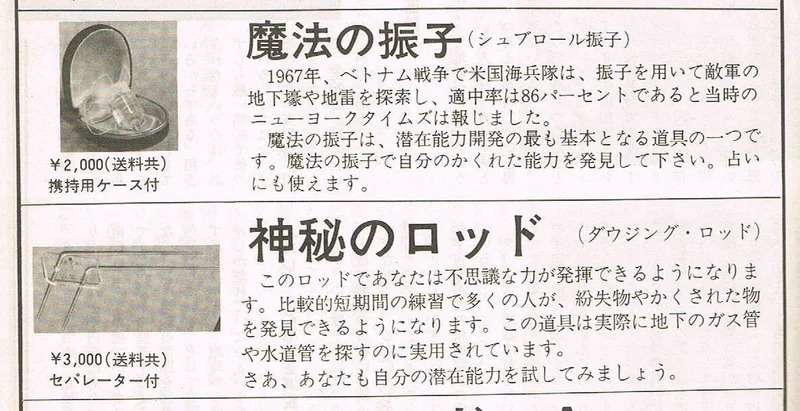 魔法の振子(シュブロール振子)
1967年、ベトナム戦争で米国海兵隊は、振子を用いて敵軍の
地下壕や地雷を探索し、適中率は86パーセントであると当時の
ニューヨークタイムズは報じました。
魔法の振子は、潜在能力開発の最も基本となる道具の一つで
す。魔法の振子で自分のかくれた能力を発見して下さい。占い
にも使えます。
¥2,000(送料共)
携持用ケース付
神秘のロッド (ダウジング・ロッド)
このロッドであなたは不思議な力が発揮できるようになりま
す。比較的短期間の練習で多くの人が、紛失物やかくされた物
を発見できるようになります。この道具は実際に地下のガス管
や水道管を探すのに実用されています。
さあ、あなたも自分の潜在能力を試してみましょう。
¥3,000(送料共)
セパレーター付